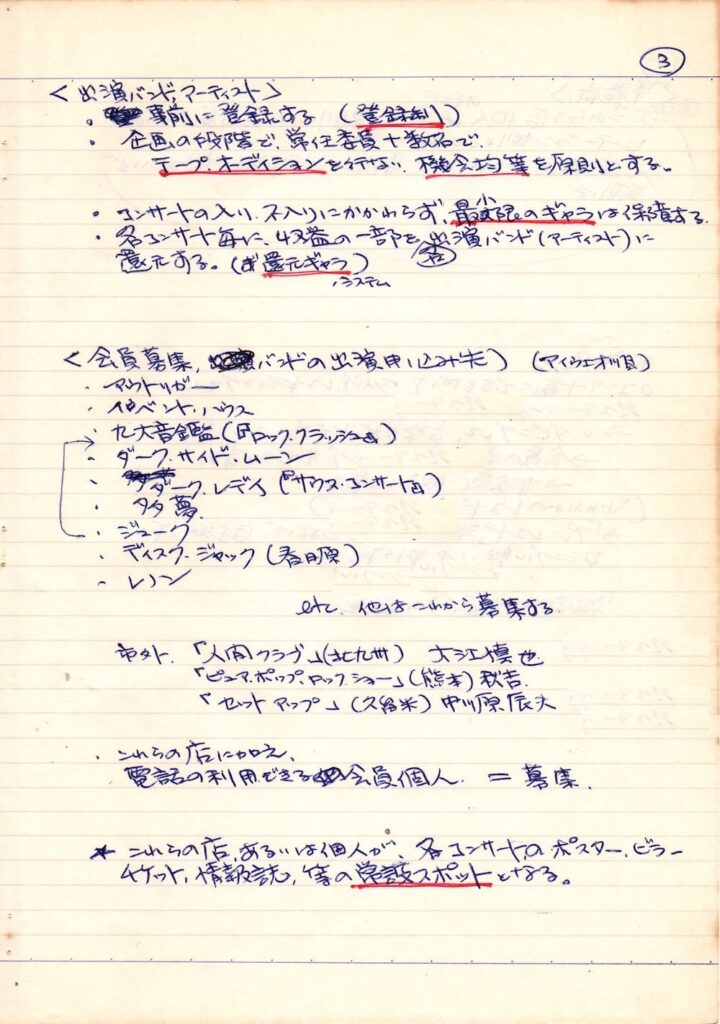 ③
〈出演バンド,アーティスト〉
・事前に登録する (登録制)
・企画の段階で、常任委員十数名で
テープ.オーディションを行ない、機会均等を原則とする。
・コンサートの入り.不入りにかかわらず、最小限のギャラは保障する.
・各コンサート毎に、収益の一部を、出演バンド(アーティスト)に
還元する。(還元ギャラ)
システム
〈会員募集,バンドの出演申し込み先〉 (アイウエオ順)
・アウトリガー
・イベント.ハウス
・九大音鑑(『ロック.クラッシュ』)
・ダーク.サイド.ムーン
・ダーク.レディ(『サウス.コンサート』)
・多夢
・ジューク
・ディスク.ジャック(春日原)
・レノン
etc. 他はこれから募集する.
市外.「人間クラブ」(北九州) 大江慎也
「ピュア.ポップ.ロック.ショー」(熊本)秋吉.
「セットアップ」(久留米)中川原辰夫
・これらの店に加え、
電話の利用できる会員個人. = 募集.
★これらの店,あるいは個人が、各コンサートのポスター,ビラー
チケット,情報誌,等の常設スポットとなる。